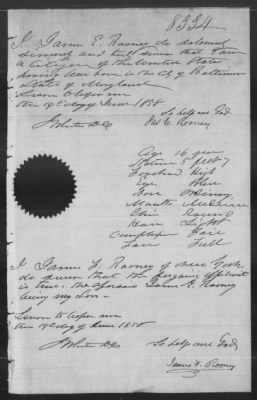 8334
I James E. Rooney do solemnly
swear and that I am
a Citizen of the United States
having been born in the City of Baltimore
State of Maryland
Sworn before me
the 19th day of June 1858
So help me God
J White
Jas E. Rooney
Age 16 year
Stature 5 feet 7
Forehead High
Eye Blue
Nose Ordinary
Mouth Medium
Chin Round
Hair Light
Complexion Fair
Face Full
I James F. Rooney of New York
do swear that the foregoing affidavit
is true. the James E. Rooney
being my Son.
Sworn to before me
the 19th day of June 1858
So help me God
J White
James F. Rooney